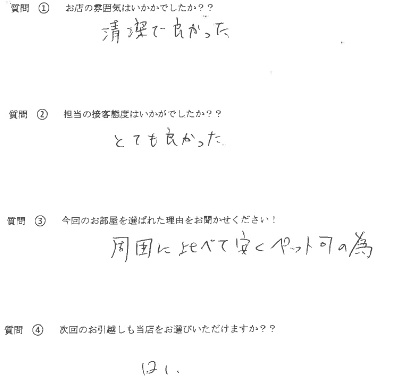 質問 ① お店の雰囲気はいかかでしたか??
清潔で良かった
質問 ② 担当の接客態度はいかがでしたか??
とても良かった
質問 ③ 今回のお部屋を選ばれた理由をお聞かせください!
周囲に比べて安くペット可の為
質問 ④ 次回のお引越しも当店をお選びいただけますか??
はい